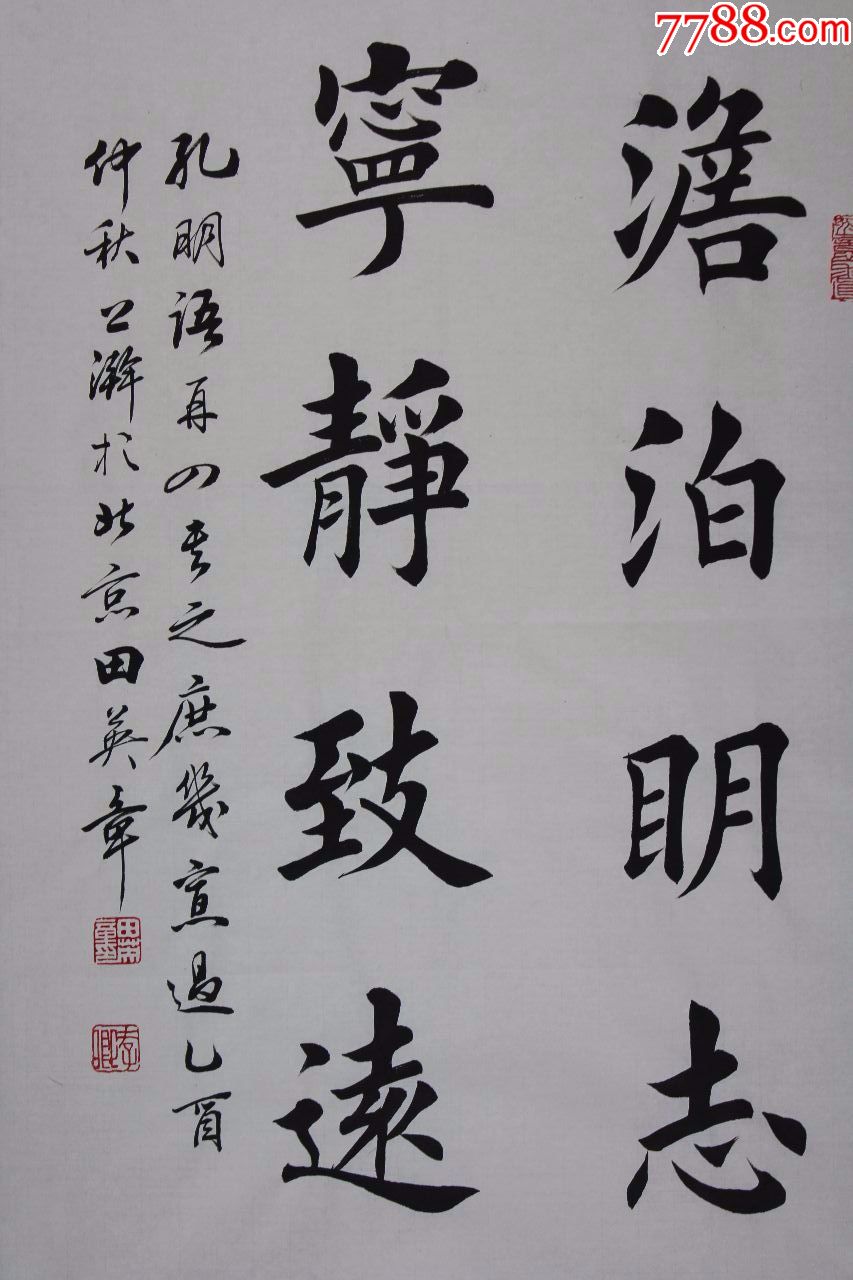 7788.com
澹泊明志
寧靜致遠
孔明語再四書之庶幾寡過乙酉
仲秋上澣於北京田英章
田英章